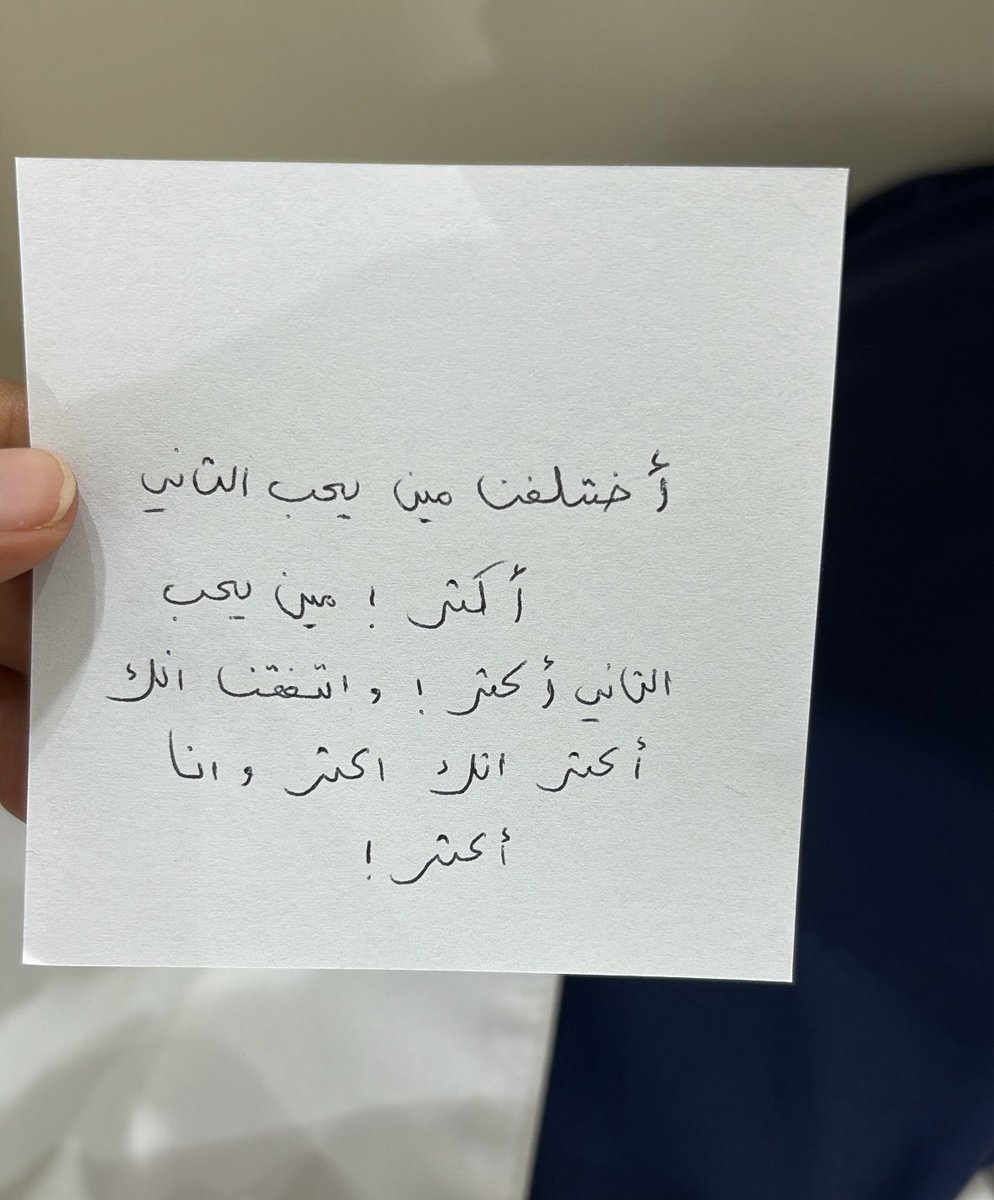 أختلفنا مين يحب الثاني
أكثر ! مين يحب
الثاني أكثر ! و اتفقنا انك
أكثر انك اكثر و انا
أكثر !